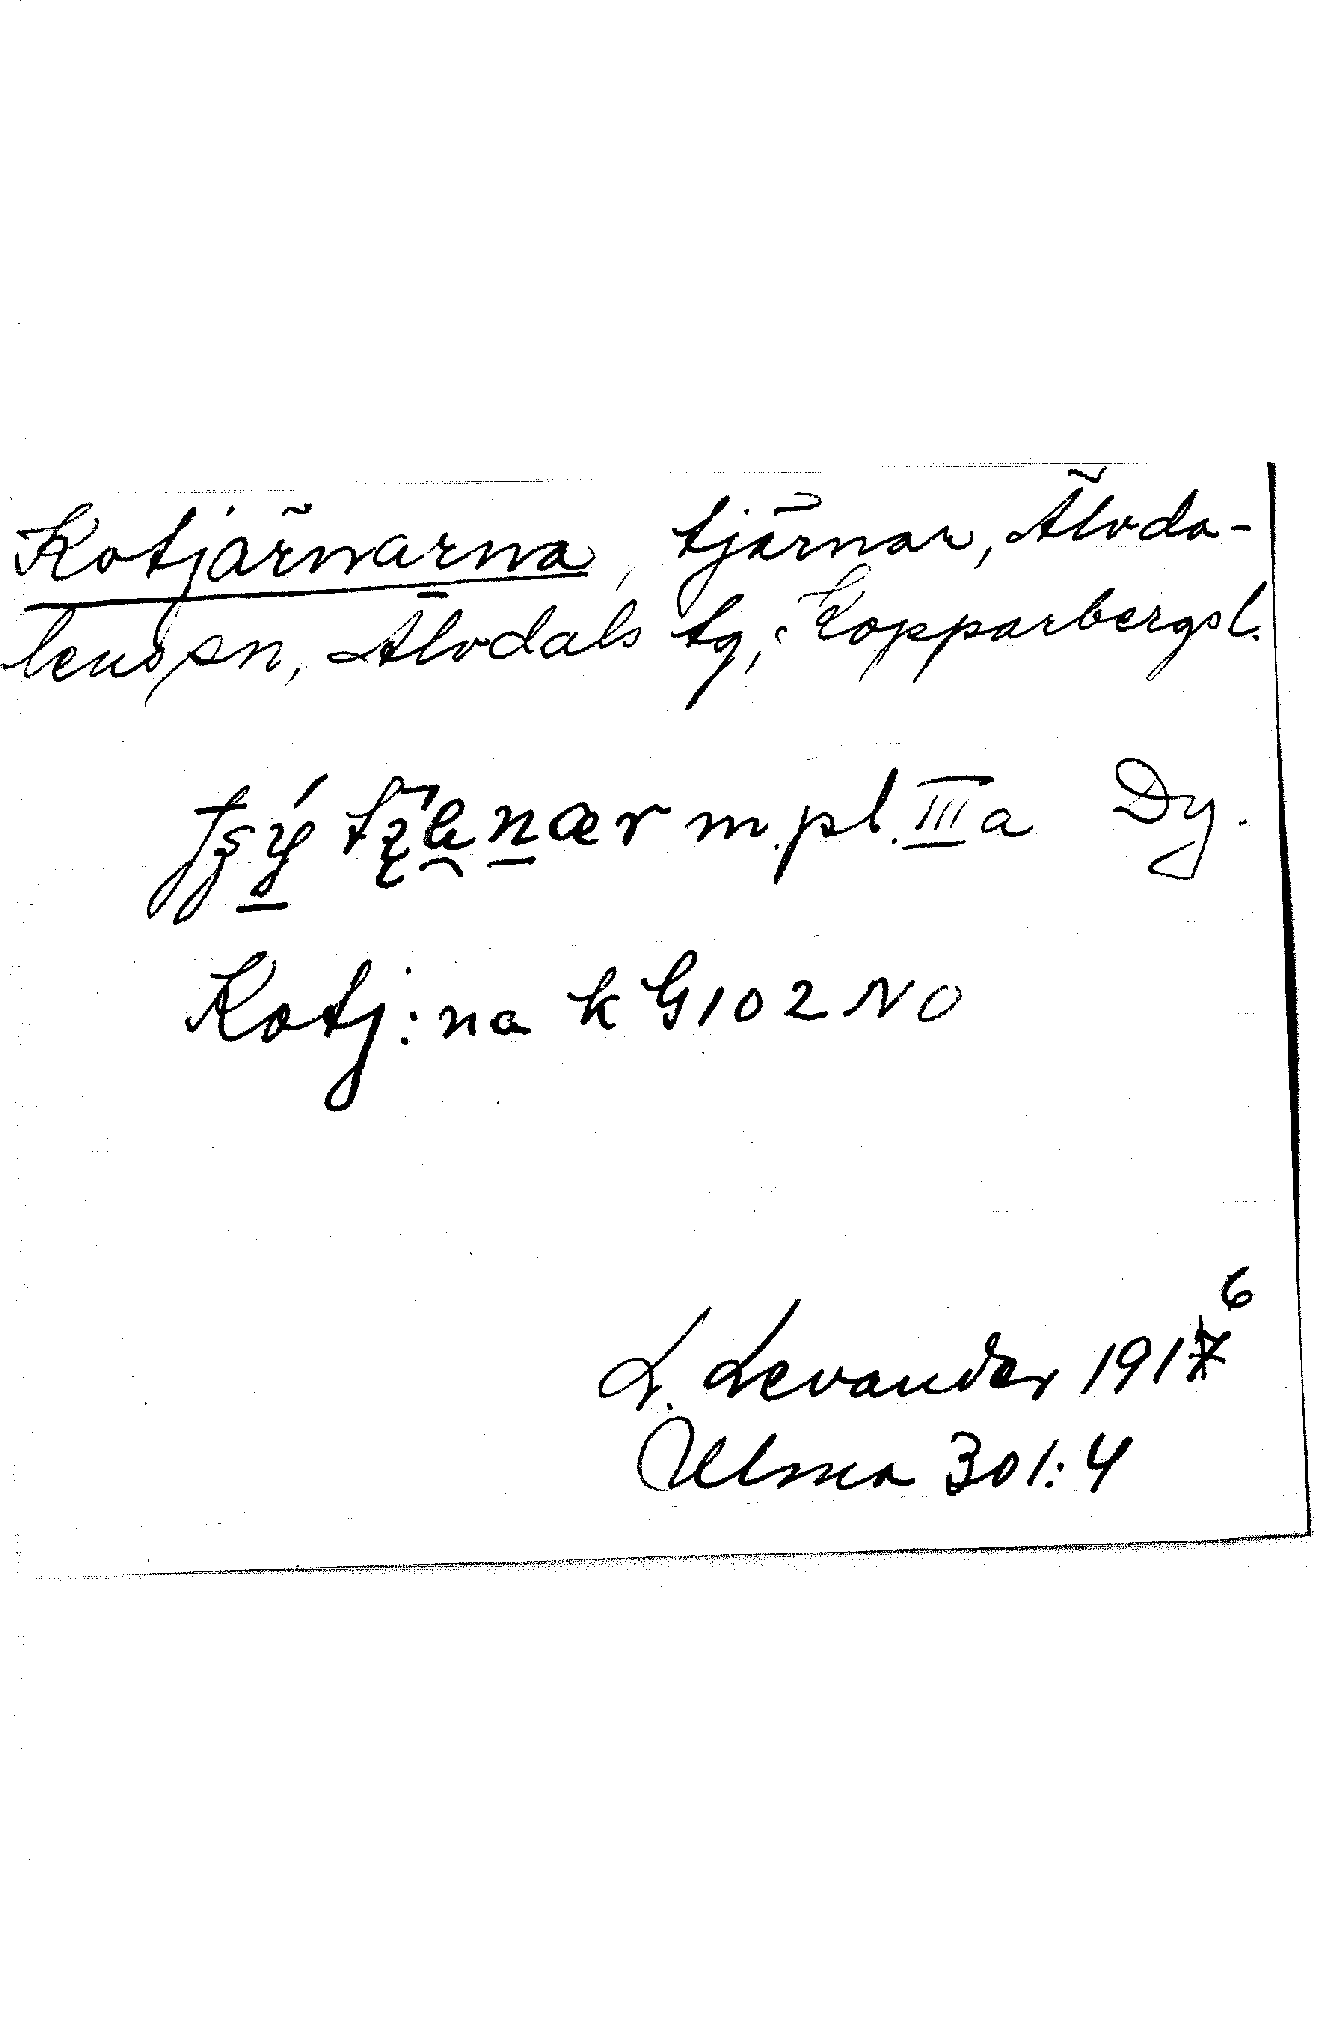 Kotjärnarna, tjärnar, Älvda-
lens sn, Älvdals tg, Kopparbergs l.
m. pl. III a Dy.
Kotj:na k G 102 NO
L. Levander 1916
Ulma 301:4